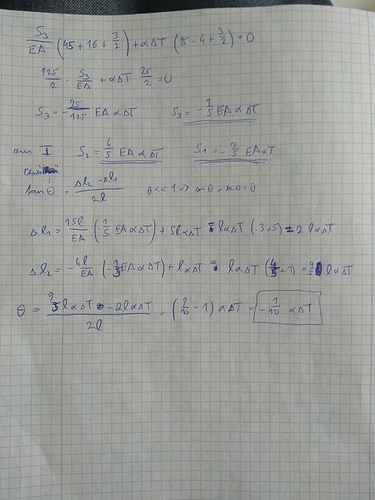 S₃/EA (45 + 16 + 3/2) + αΔT (15 - 4 + 3/2) = 0
125/2 · S₃/EA + αΔT 25/2 = 0
S₃ = - 25/125 EA αΔT S₃ = - 1/5 EA αΔT
I: S₂ = 4/5 EA αΔT S₁ = - EA αT
tan θ = Δl₂ - Δl₁ / 2l θ << 1 => θ
Δl₁ = 15l/EA (- 1/5 EA αΔT) + 5lαΔT = lαΔT (-3+5) = 2 lαΔT
Δl₂ = - 4l/EA (- 1/5 EA αΔT) + lαΔT = lαΔT (4/5 + 1) = lαΔT
θ = 9/5 lαΔT - 2lαΔT / 2l = (9/10 - 1) αΔT = - 1/10 αΔT